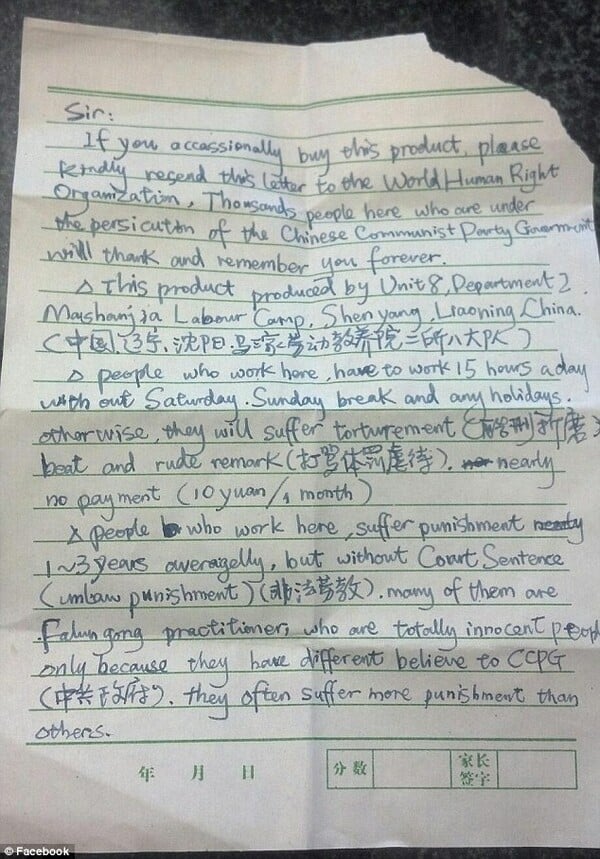 Sir:
If you occassionally buy this product, please
kindly resend this letter to the World Human Right
Organization. Thousands people here who are under
the persicution of the Chinese Communist Party Government
will thank and remember you forever.
△ This product produced by Unit 8, Department 2,
Mashanjia Labour Camp, Shenyang, Liaoning, China.
(中国,辽宁,沈阳,马三家劳动教养院二所八大队)
△ people who work here, have to work 15 hours a day
with out Saturday, Sunday break and any holidays.
otherwise, they will suffer torturement (酷刑折磨)
beat and rude remark (打骂体罚虐待). nearly
no payment (10 yuan/1 month)
△ people who work here, suffer punishment nearly
1~3 years averagelly, but without Court Sentence
(unlaw punishment) (非法劳教). many of them are
Falun gong practitioner, who are totally innocent people
only because they have different believe to CCPG
(中共政府). they often suffer more punishment than
others.
年 月 日
分数 家长签字
© Facebook